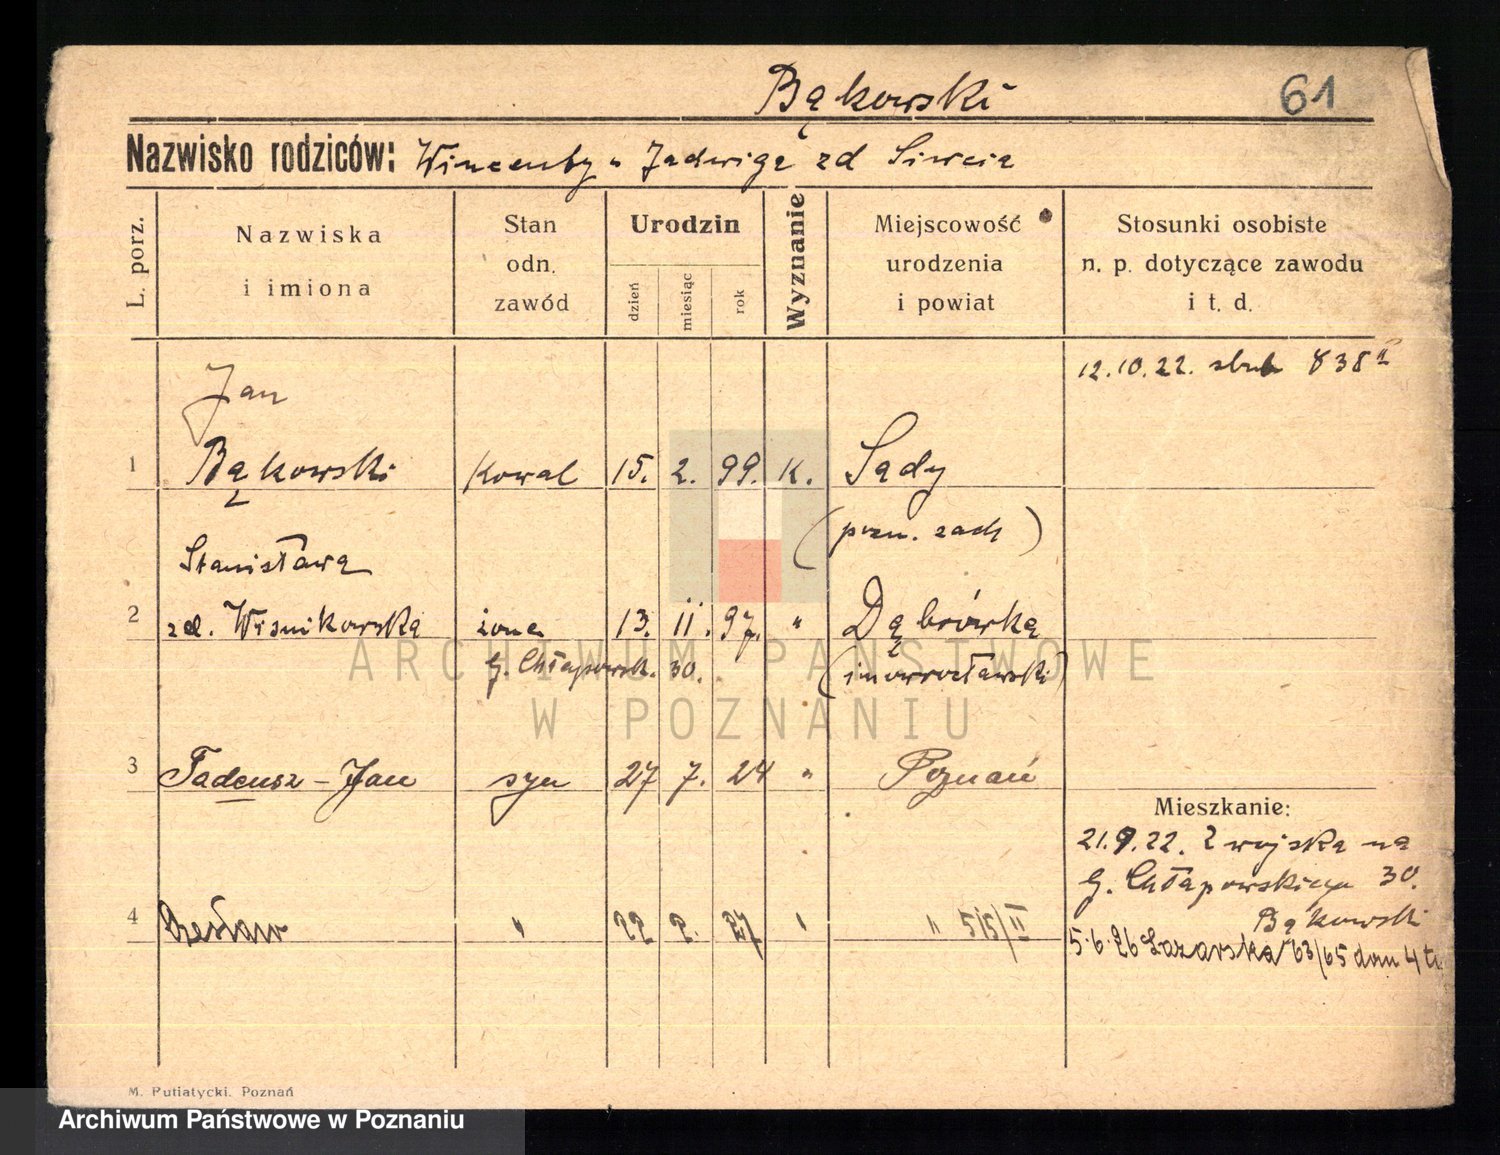 Bąkowski
61
Nazwisko rodziców: Wincenty u Jadwiga zd
L. porz.
Nazwiska
i imiona
Stan
odn.
zawód
Urodzin
dzień
miesiąc
rok
Wyznanie
Miejscowość
urodzenia
i powiat
Stosunki osobiste
n. p. dotyczące zawodu
i t. d.
12.10.22. ślub 838 II
Jan
1 Bąkowski kowal 15. 2. 99. K. Sądy
(pozn. zach)
Stanisława
2 zd. Wisnikowska żona 13. 11. 97. " Dąbrówka
G. Chłapowsk. 30. (inowrocławski)
3 Tadeusz - Jan syn 27 7. 24 " Poznań
Mieszkanie:
21.9.22. Z wojska na
G. Chłapowskiego 30.
Bąkowski
4 Czesław " 22 2. 27 " " 515/II
5.6.26 Łazarska 63/65 dom 4
M. Putiatycki. Poznań
ARCHIWUM PAŃSTWOWE
W POZNANIU
Archiwum Państwowe w Poznaniu